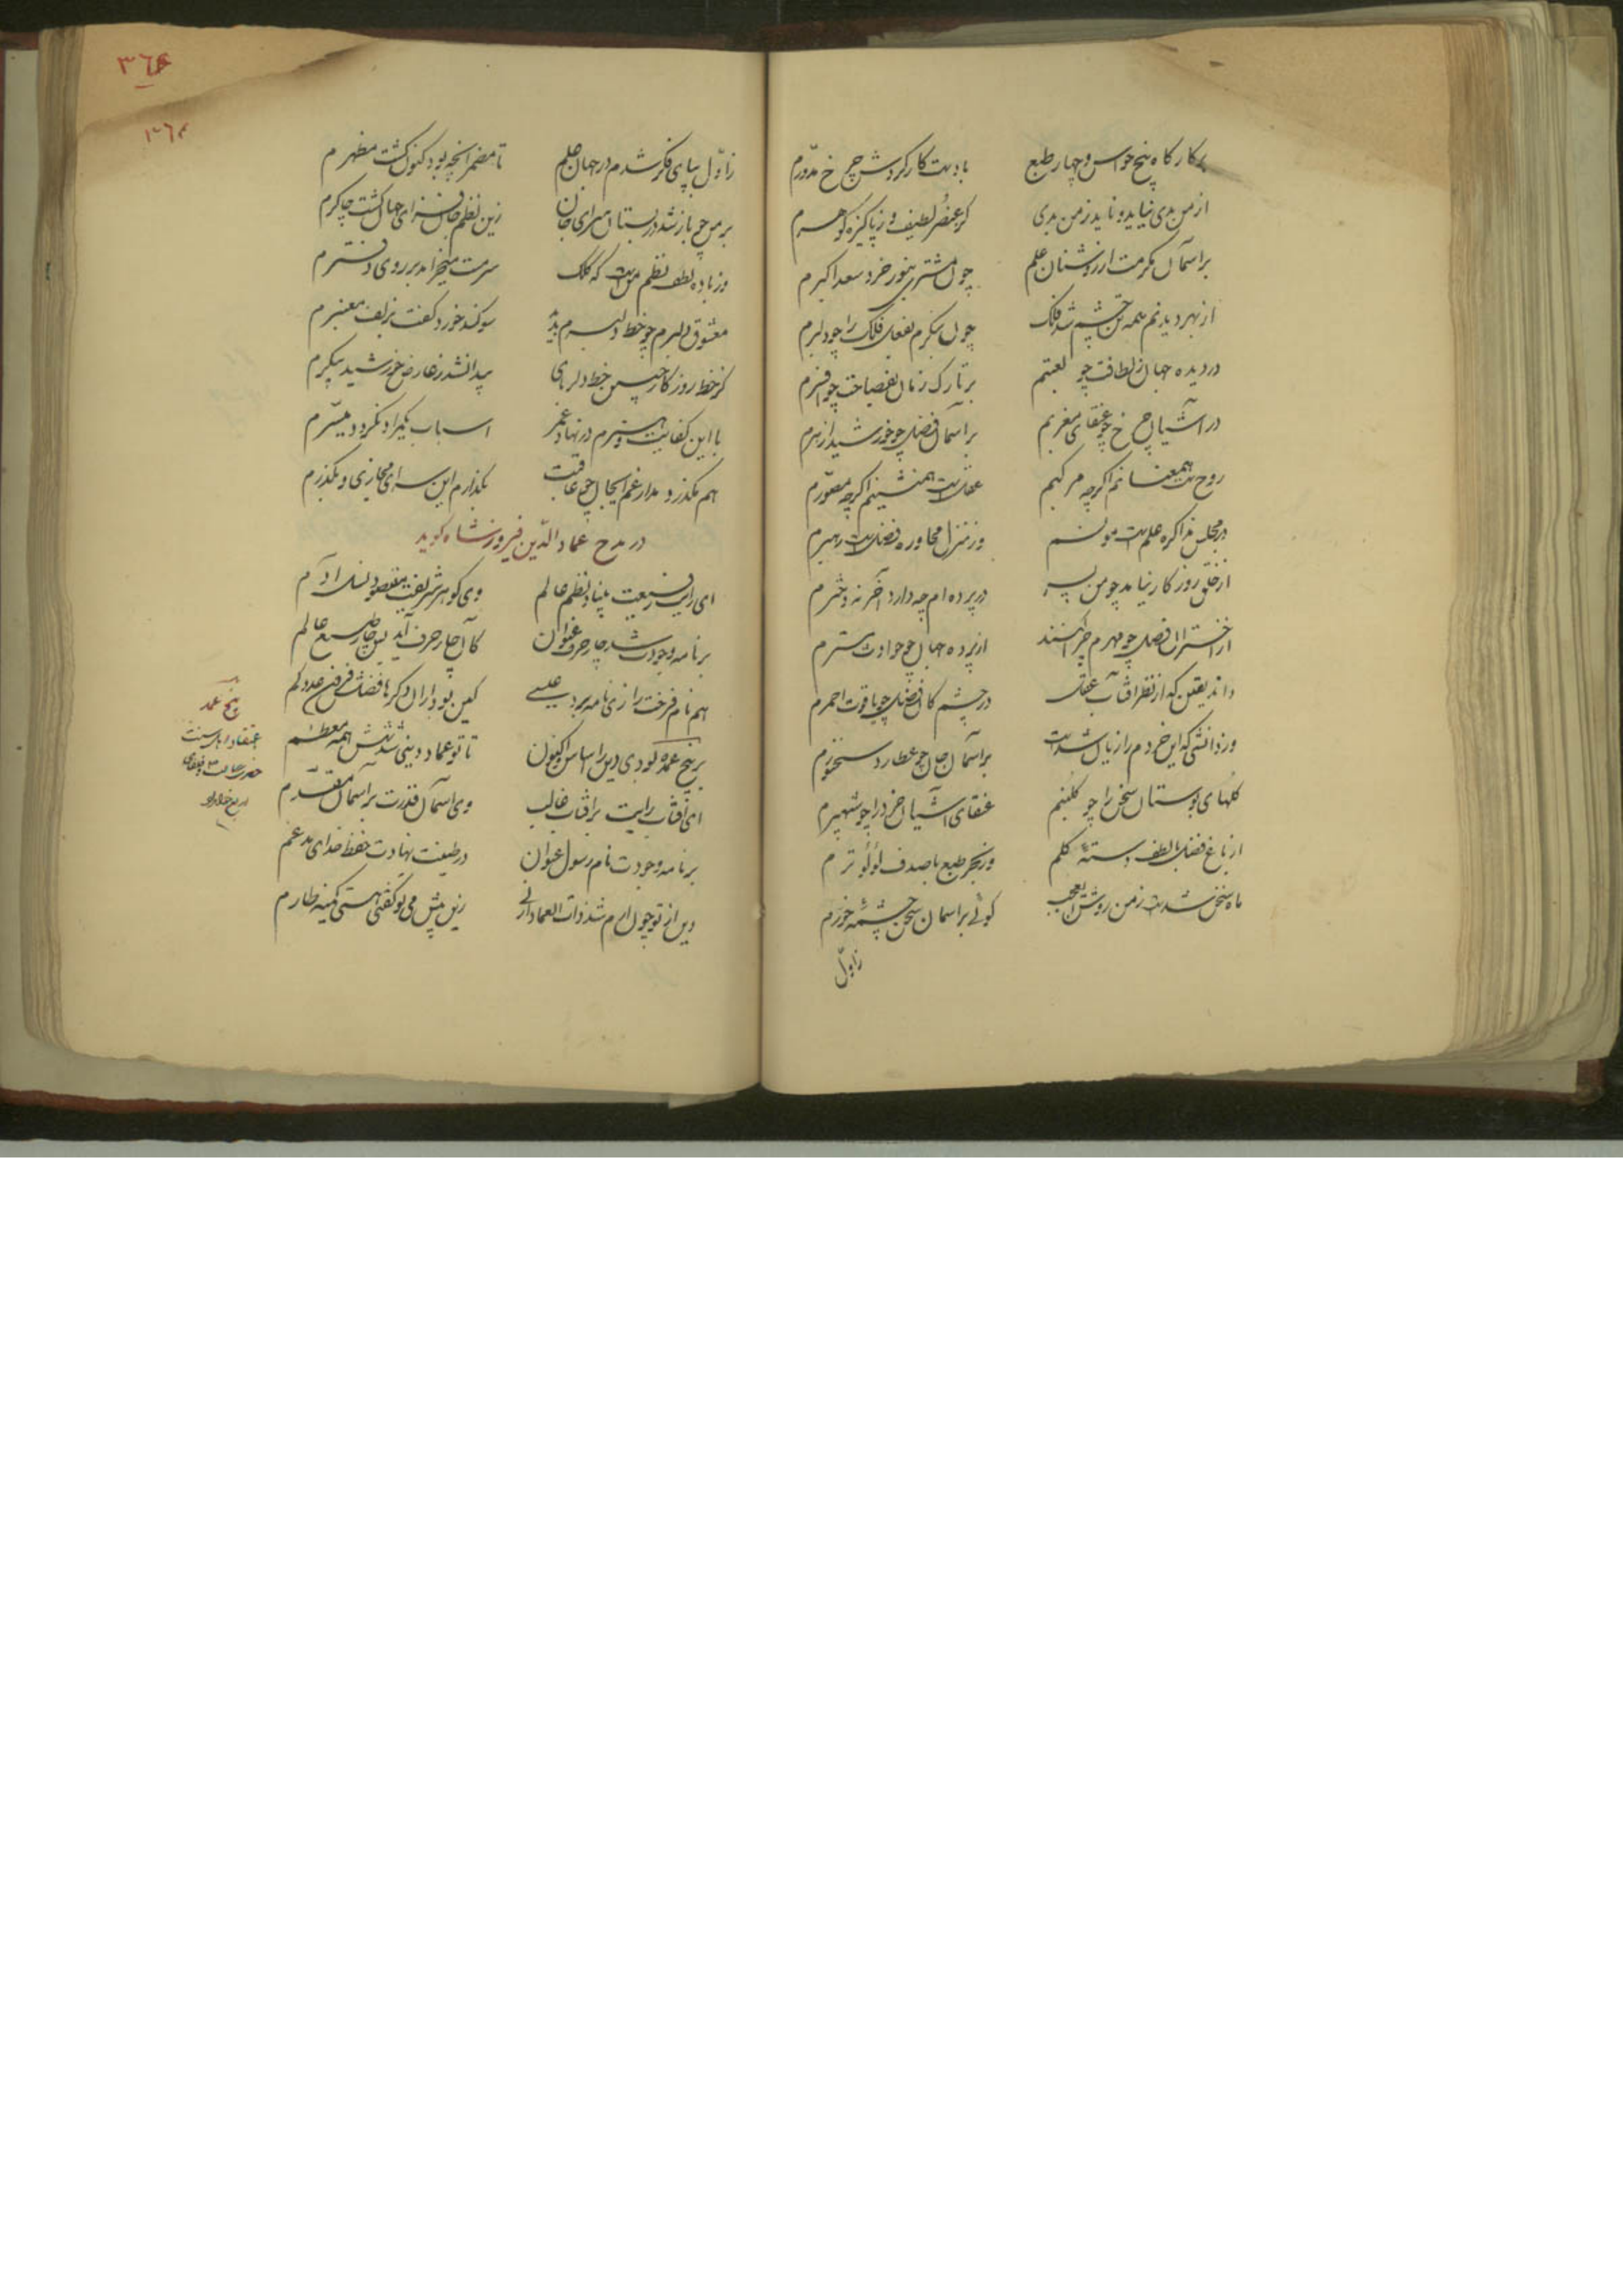 بکارگاه پنج حواس و چهار طبع بادیست کارکردش چرخ مدورم
از من بدی نیاید و ناید ز من بدی کز عنصر لطیف و ز پاکیزه گوهرم
بر آسمان مکرمت از روشنان علم چون مشتری بنور خرد سعد اکبرم
از بهر دیدنم همه تن چشم شد فلک چون بنگرم بفعل فلک را چو دلبرم
در دیده جهان ز لطافت چو لعبتم بر تارک زمان بفصاحت چو افسرم
در آشیان چرخ چو عنقای مغربم بر آسمان فضل چو خورشید ازهرم
روحست همعنانم اگرچه مرکبم عقلست همنشینم اگرچه مصورم
در مجلس مذاکره علمست مونسم ور منزل محاوره فضلست رهبرم
از خلق روزگار نیاید چو من پسر در پرده ام چه دارد آخر نه دخترم
از اختران فضل چو مهرم چرا کنند از پرده جهان چو حوادث مسترم
داند یقین که از نظر آفتاب عقل در چشم کان فضل چو یاقوت احمرم
ور ز آتشی که این خردم را زیان شدست بر آسمان جان چو عطارد سخنورم
گلهای بوستان سخن را چو گلبنم عنقای آشیان خرد را چو شهپرم
از باغ فضل بالطف دسته گلم وز بحر طبع باصدف لؤلؤ ترم
ماه سخن شدست ز من روشن ای عجب گوئی بر آسمان سخن چشمه خورم
زاول
۳۶۴
۳۶۴
زاول بپای فکر شدم در جهان علم تا مضمر آنچه بود کنون گشت مظهرم
بر من چو باز شد در بستان سرای جان زین نظم جان فزای جهان گشت چاکرم
وز باده لطف نظم منست که کلک سرمست میخرامد بر روی دفترم
معشوق دلبرم چو خط دلبرم بدید سوگند خورد و گفت بزلف معنبرم
کز خط روزگار چنین خط دلربای پیدا نشد ز عارض خورشید پیکرم
با این کفایت و هنرم در نهاد عمر اسباب یکمراد نگردد میسرم
هم بگذرد مدار غم اینجان چو عاقبت بگذارم این سرای مجازی و بگذرم
در مدح عماد الدین فیروز شاه گوید
ای رایت رفیعت بنیاد نظم عالم وی گوهر شریفت مقصود نسل آدم
بر نامه وجودت شد چار حرف عنوان کان چار حرف آید بس چار طبع عالم
هم نام فرخت را زی نامه برد عیسی
بر پنج عمده کو بدی دین را اساس اکنون تا تو عماد دینی شد شش همه معظم
ای آفتاب رایت بر آفتاب غالب وی آسمان قدرت بر آسمان مقدم
بر نامه وجودت نام رسول عنوان در طینت نهادت حفظ خدای مدغم
دین از تو چون ارم شد ذات العماد ازین پیش می تو گفتی هستی کمینه طارم
پنج عمد